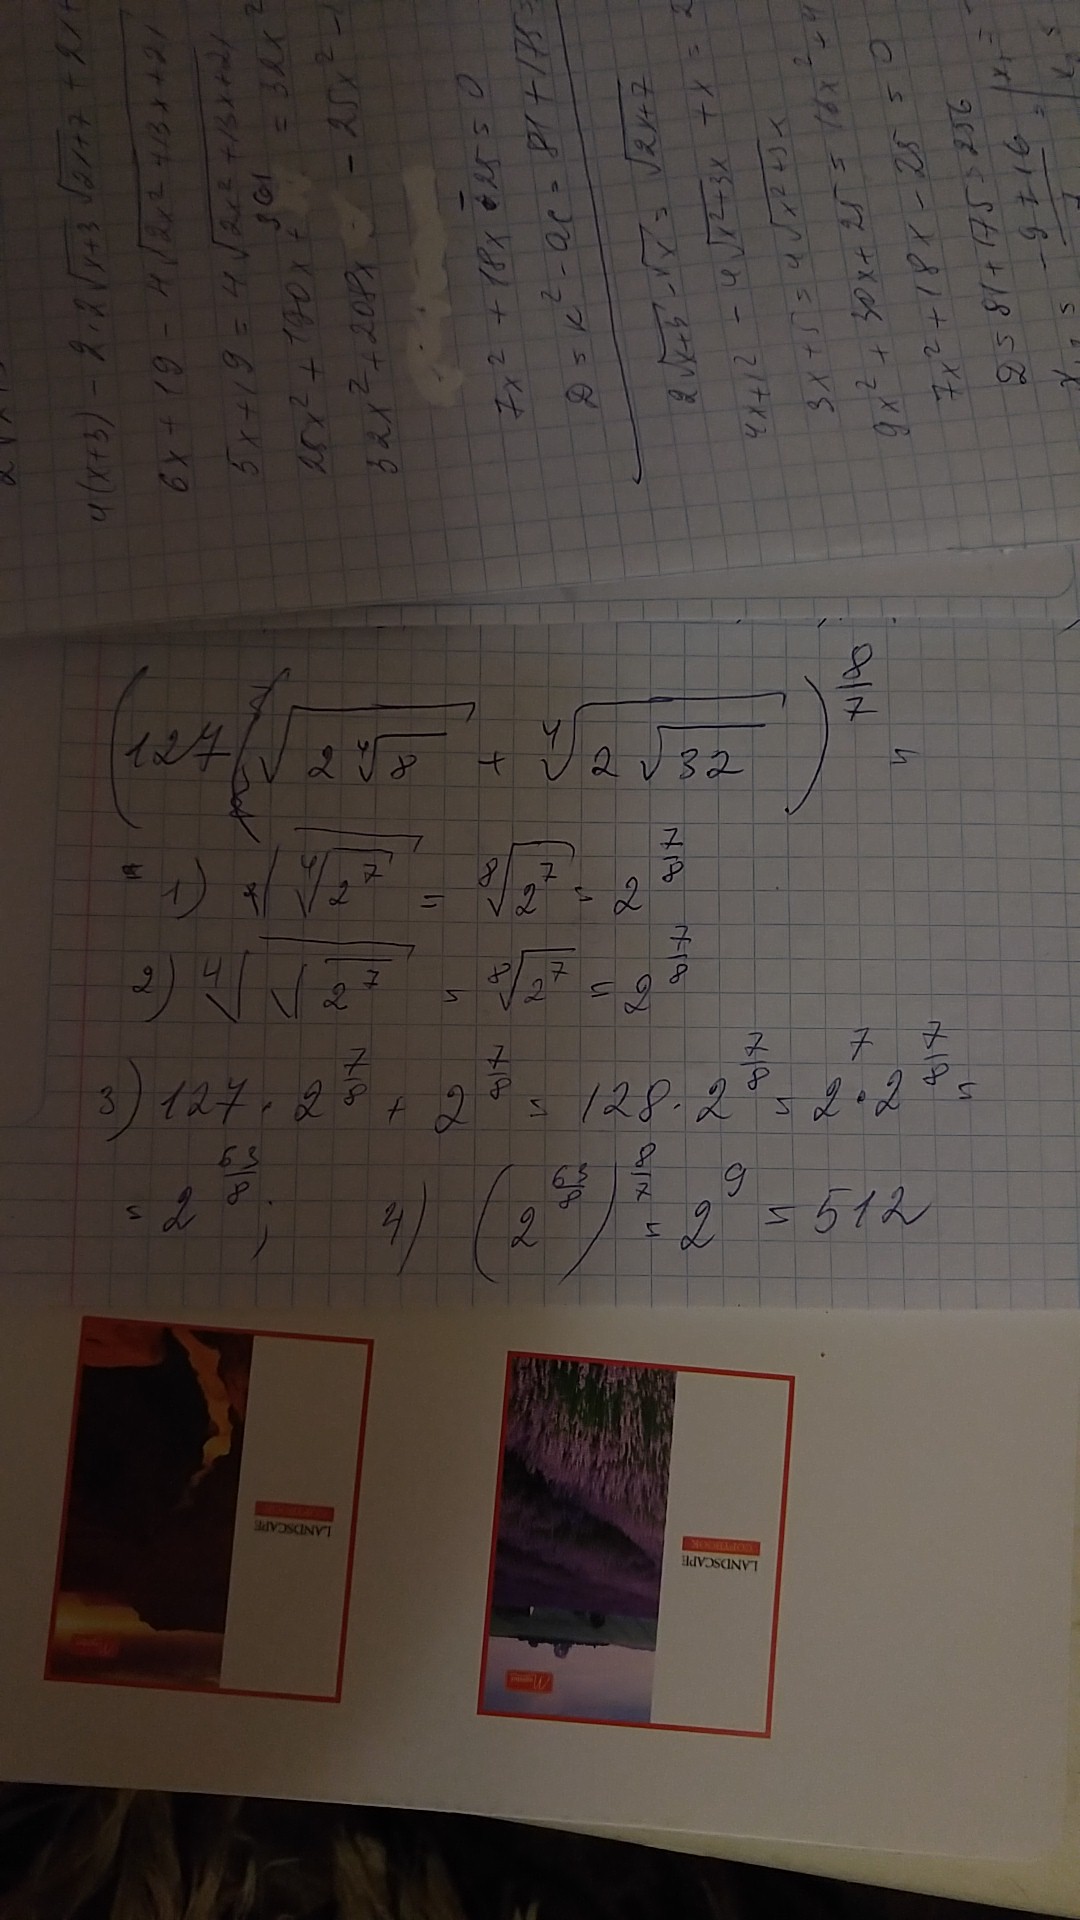 4(x+3) - 2·2√x+3 √2x+7 + 2x+
6x + 19 - 4√2x²+13x+21
5x+19 = 4√2x²+13x+21
25x² + 190x + 361 = 32x²
32x² + 208x - 25x² -
7x² + 18x - 25 = 0
D = k² - ac = 81 + 175 =
2√x+3 - √x = √2x+7
4x+12 - 4√x²+3x + x = 2
3x+5 = 4√x²+3x
9x² + 30x + 25 = 16x² + 4
7x² + 18x - 25 = 0
D = 81 + 175 = 256
-9 ± 16 / 7 =
(127 √(2 ⁴√8) + ⁴√(2√32))^(8/7) =
1) √(⁴√(2⁷)) = ⁸√(2⁷) = 2^(7/8)
2) ⁴√(√(2⁷)) = ⁸√(2⁷) = 2^(7/8)
3) 127 · 2^(7/8) + 2^(7/8) = 128 · 2^(7/8) = 2⁷ · 2^(7/8) =
= 2^(63/8); 4) (2^(63/8))^(8/7) = 2⁹ = 512
LANDSCAPE
COPYBOOK
LANDSCAPE
COPYBOOK